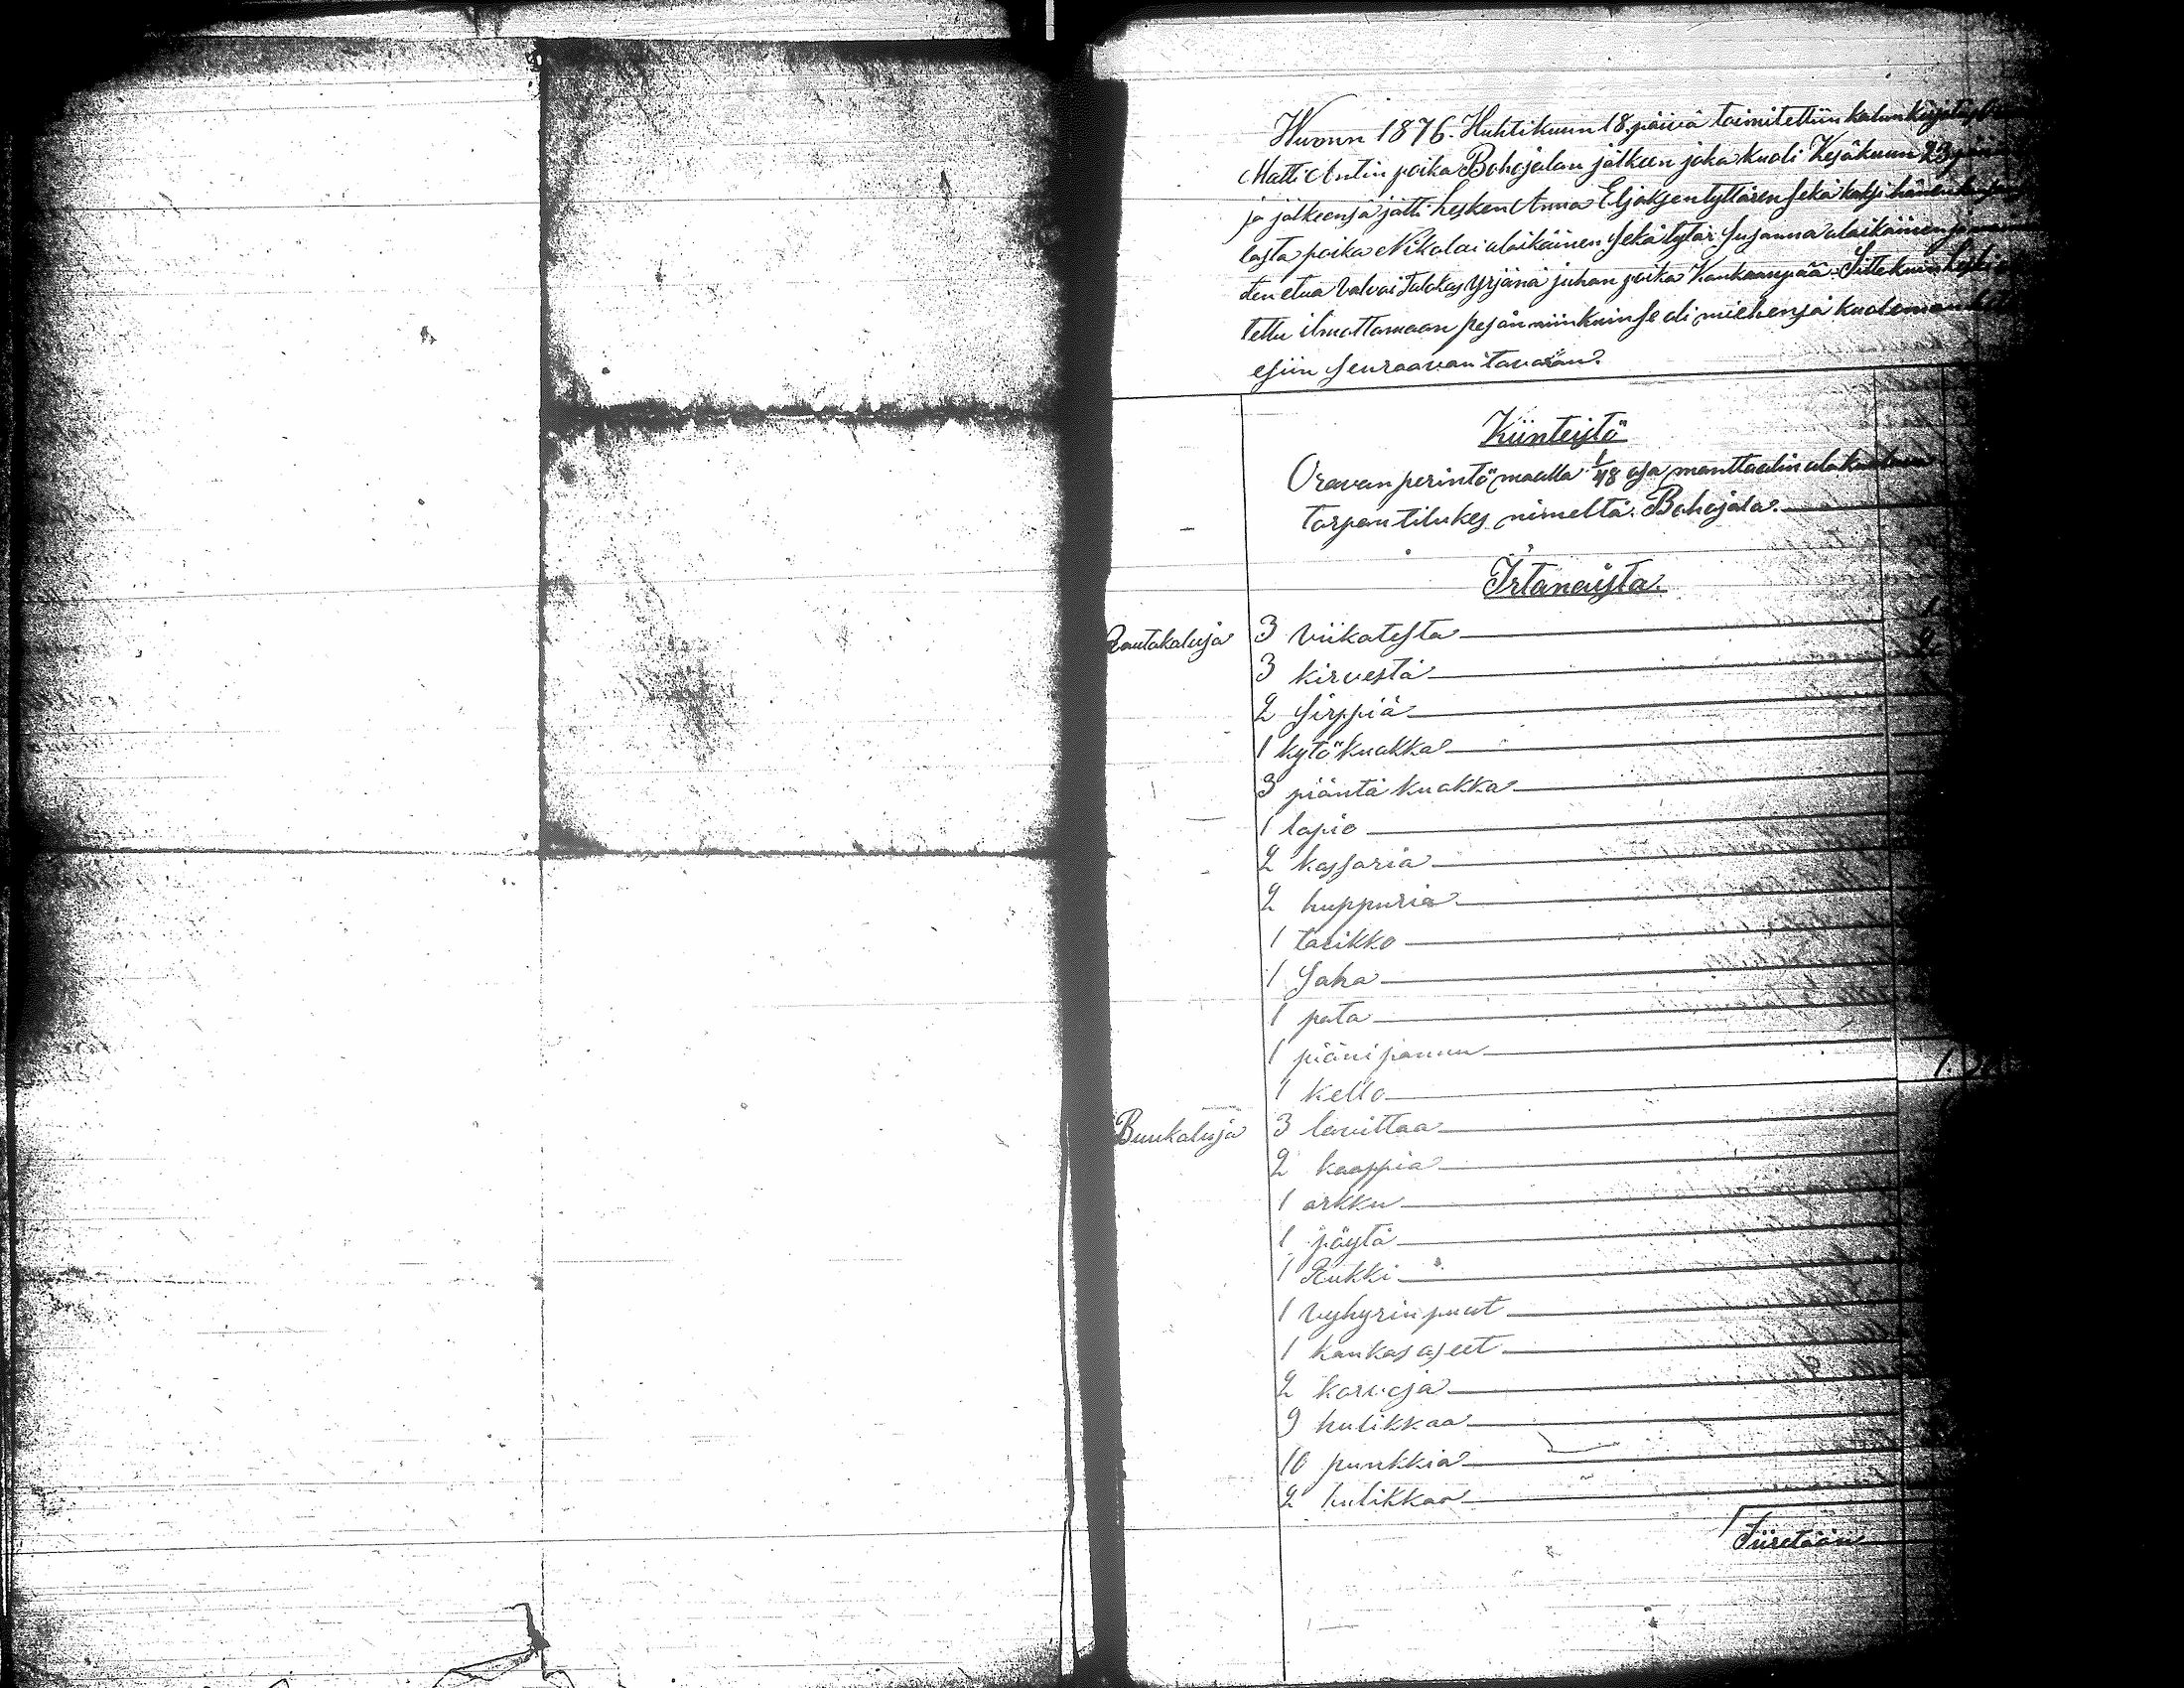 Wuonn 1876. Huhtikuun 18. päivä toimitettiin kalunkirjoitus
Matti Antin poika Bohojalan jälkeen joka kuoli Kesäkuun 23
ja jälkeensä jätti lesken Anna Eljaksentyttären sekä kaksi hänen
lasta poika Nikolai alaikäinen sekä tytär Susanna alaikäinen
den etua valvoi Talokas Yrjänä juhan poika Kankaanpää. Sittekuin Leski
tettu ilmottamaan pesän niinkuin se oli miehensä kuoleman
esiin seuraavan tavaran.
Kiinteistö
Oravan perintö maalla 1/48 osa manttaalin
torpan tilukes nimeltä Bohojala.
Irtanaista.
Rautakaluja 3 viikatesta
3 kirvestä
2 sirppiä
1 kytö kuokka
3 piäntä kuokka
1 lapio
2 kassaria
2 huppuria
1 tarikko
1 saha
1 pata
1 piäni pannu
1 kello
Buukaluja 3 lavittaa
2 kaappia
1 arkku
1 pöytä
1 Rukki
1 vyhyrin puut
1 kankas aseet
2 korvoja
9 hulikkaa
10 punkkia
2 hulikkaa
Siiretään